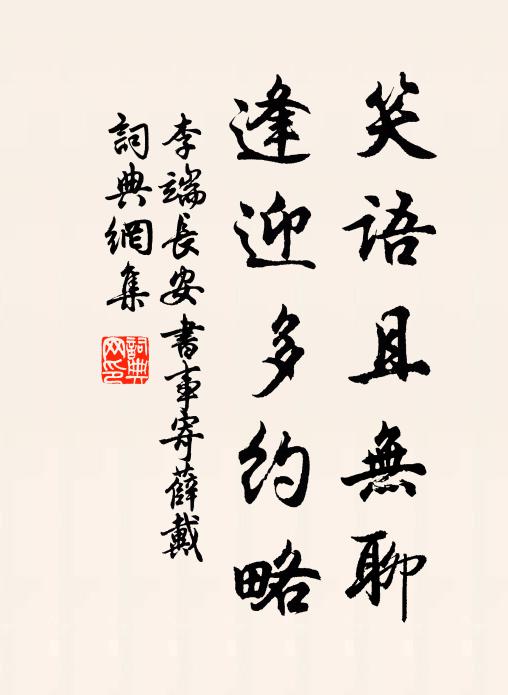 笑語且無聊
逢迎多約略
李端長安書事寄薛戴
詞典網集
詞典網印